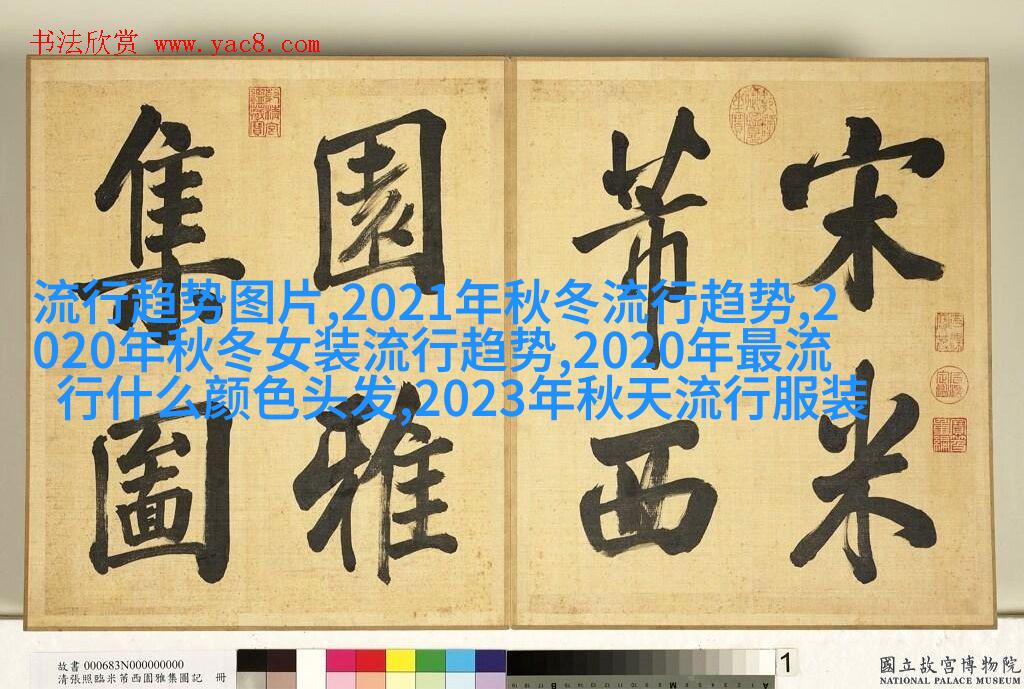 书法欣赏 www.yac8.com
宋米
芾西
園雅
集圖
流行趋势图片,2021年秋冬流行趋势,2
020年秋冬女装流行趋势,2020年最流
行什么颜色头发,2023年秋天流行服装
故書 000683N000000000
清張照臨米芾西園雅集圖記 冊
1
B
國立故宮博物院
NATIONAL PALACE MUSEUM